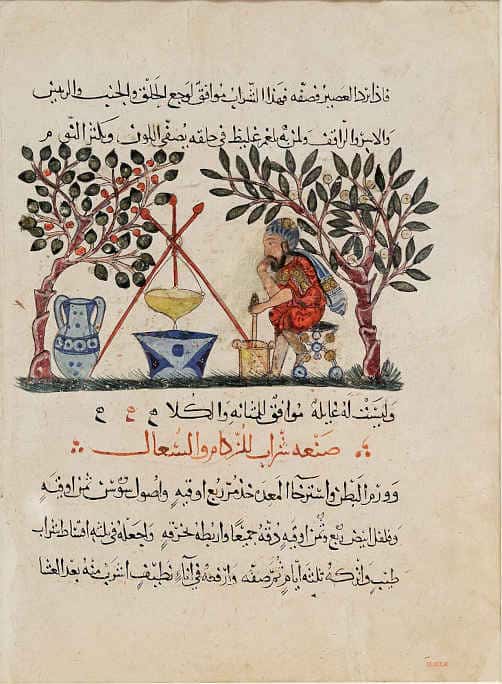 فاذا برد العصير فصفه فهذا الشراب موافق لوجع الحلق والجنب والريتين
والاسر والراقف ولمن به بلغم غليظ في حلقه يصفي اللون ويكثر النوم
وليست له غايله موافق للمثانه والكلا
صنعه شراب للزكام والسعال
وورم البطن واسترخا المعده خذ مر ربع اوقيه واصول سوس ثمن اوقيه
وفلفل ابيض ربع وثمن اوقيه دقه جميعا واربطه بخرقه واجعله في ثلثه اقساط شراب
طيب واتركه ثلثه ايام ثم صفه وارفعه في اناء نظيف اشرب منه بعد العشا